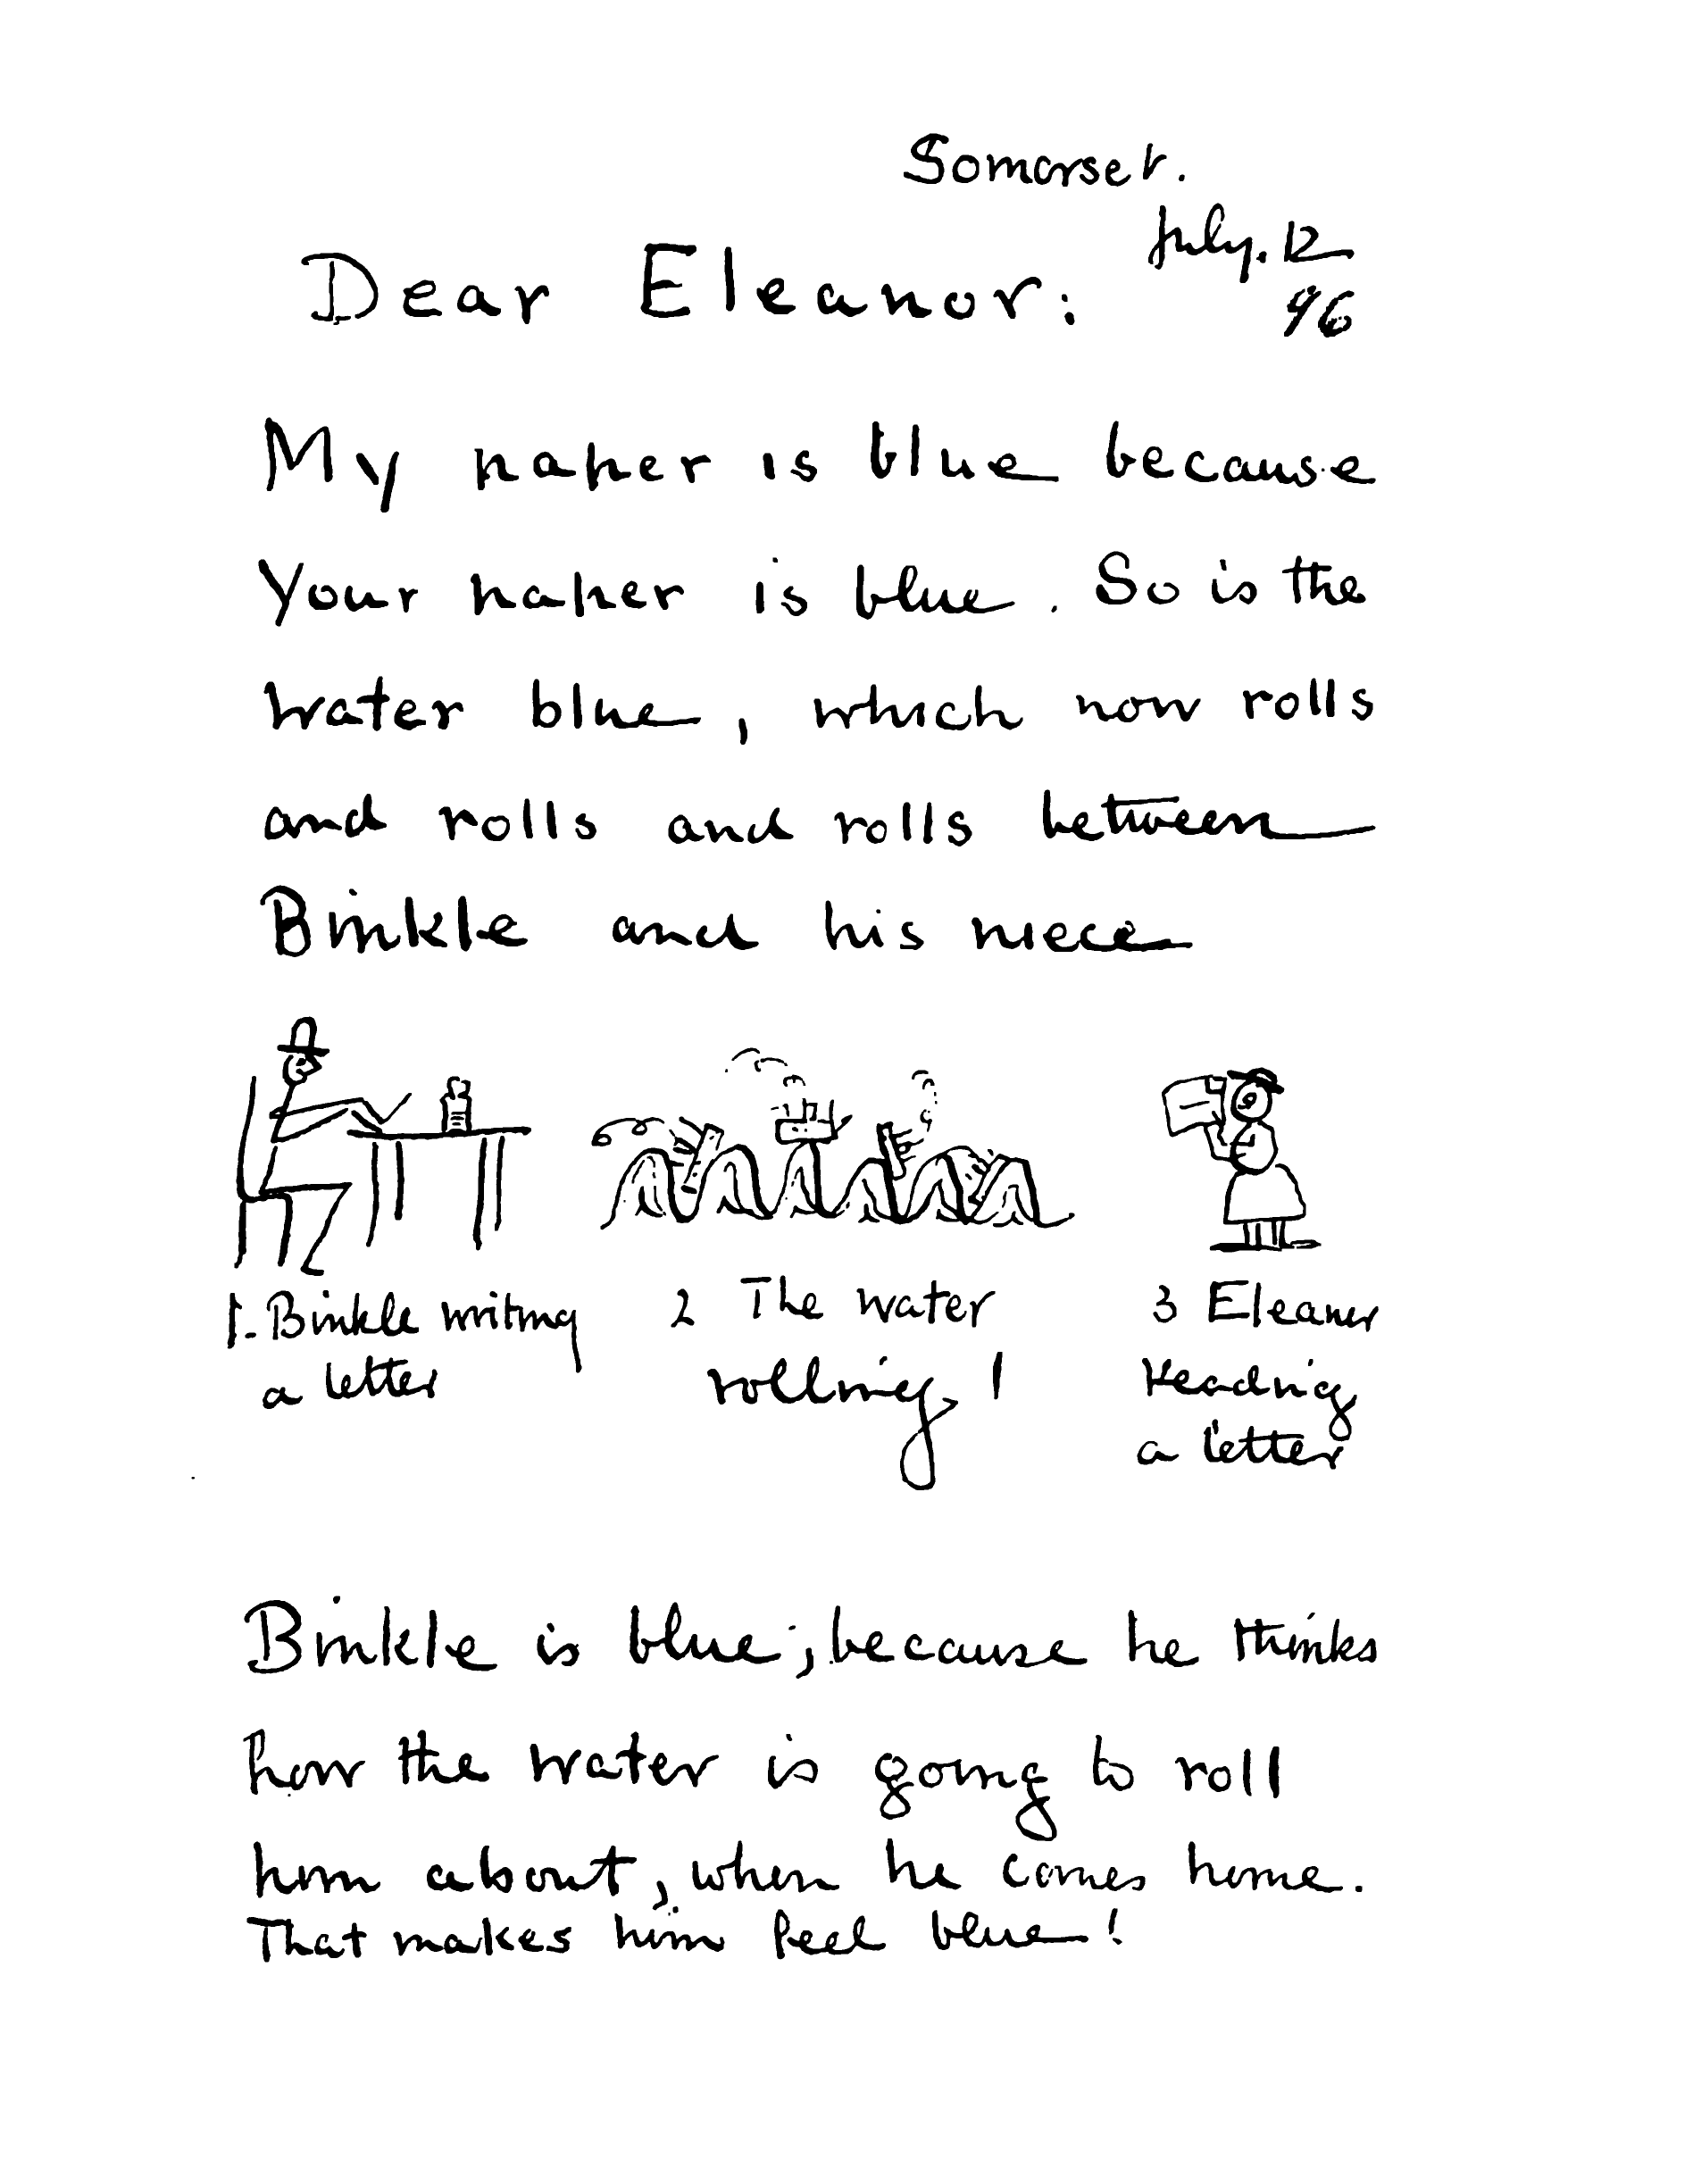 Somerset.
July. 12
96
Dear Eleanor:
My paper is blue because
Your paper is blue. So is the
water blue, which now rolls
and rolls and rolls between
Binkle and his niece
1. Binkle writing
a letter
2 The water
rolling!
3 Eleanor
Reading
a letter
Binkle is blue; because he thinks
how the water is going to roll
him about, when he comes home.
That makes him feel blue!